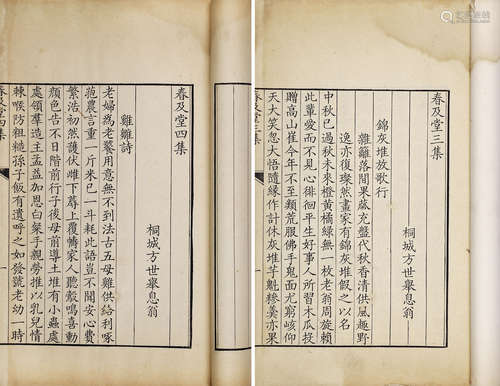 春及堂三集
桐城方世舉息翁
錦灰堆放歌行
雜籬落間果蓏充盤代秋香清供風趣野
逸亦復璨然畫家有錦灰堆假之以名
中秋已過秋未來橙黃橘綠無一枚老翁周旋賴
此輩愛而不見心徘徊平生好事人所習木瓜投
贈高山崔今年不至類荒服佛手鬼面尤窮岐仰
天大笑忽大悟隨緣作計休灰堆芋魁糝羹亦果
春及堂三集
一
春及堂四集
桐城方世舉息翁
雞雛詩
老婦為老饕用意無不到法古五母雞供給利啄
菢農言重一斤米已一斗耗此語豈不聞安心費
繁浩初然護伏雌下蓐上覆幬家人聽鷇鳴喜動
顏色告不日階前行子後母前導土堆有小蟲處
處領羣造玉盂益加恩白粲手親勞推以乳兒情
棘喉防粗糙孫子飯有遺呼之如發號老幼一時
春及堂四集
一